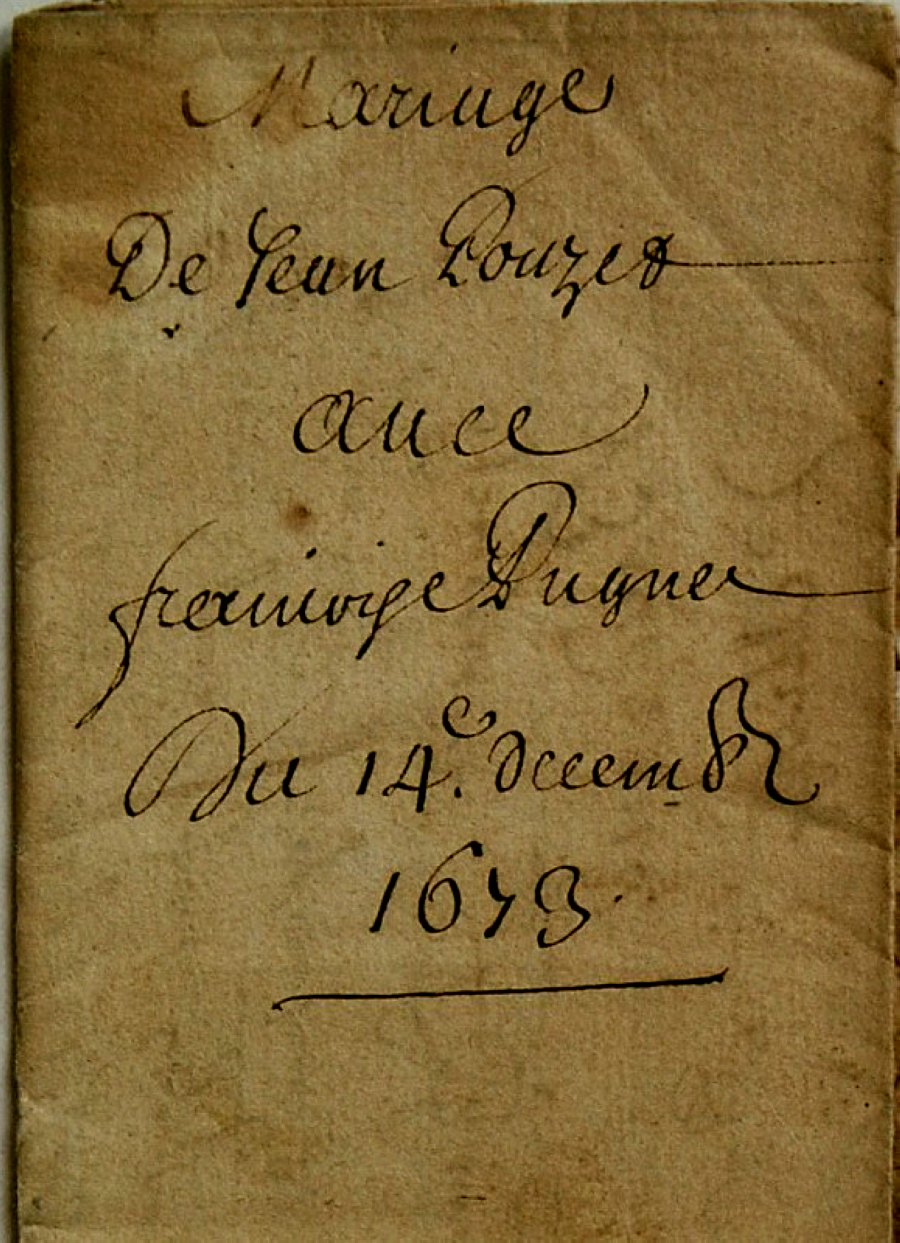 Mariage
De Jean Pouzet
auec
francoise Pugnet
Du 14.e decembr
1673.